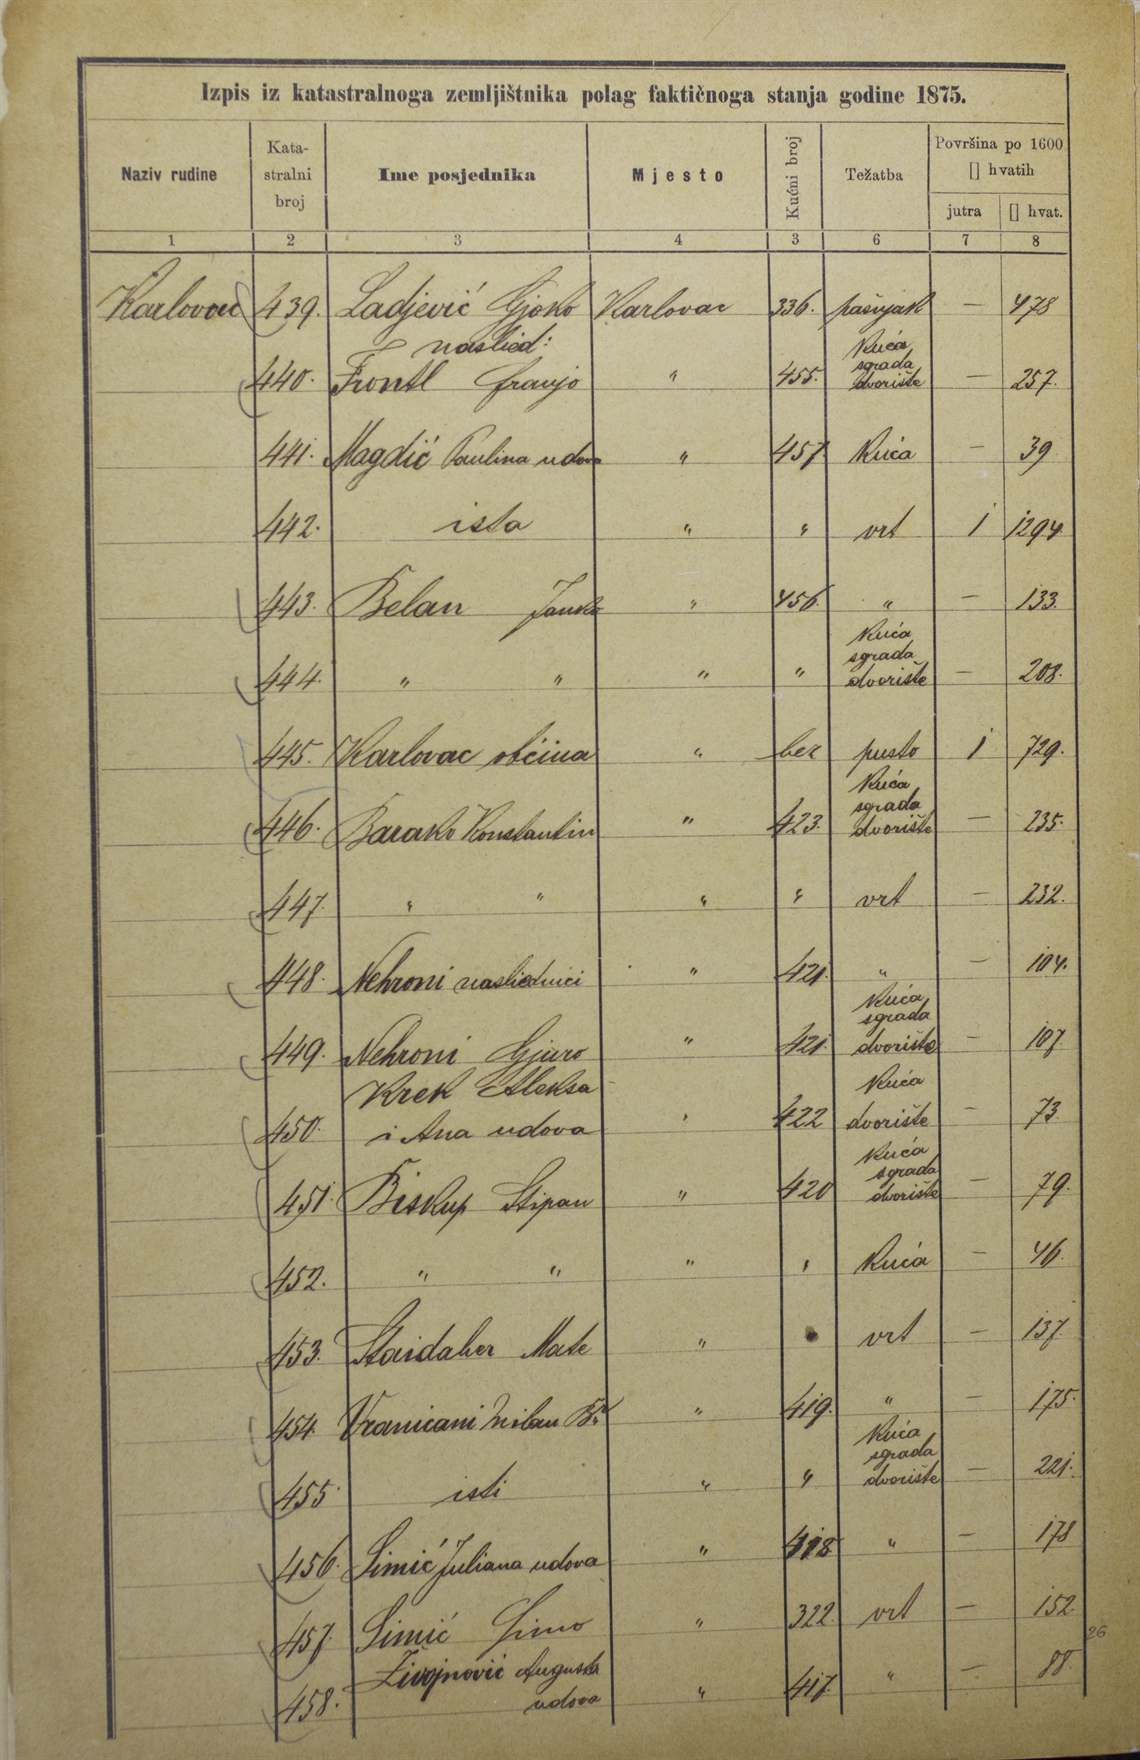 Izpis iz katastralnoga zemljištnika polag faktičnoga stanja godine 1875.
Naziv rudine | Kata-stralni broj | Ime posjednika | Mjesto | Kućni broj | Težatba | Površina po 1600 [] hvatih
jutra | [] hvat.
1 2 3 4 3 6 7 8
Karlovac 439. Ladjević Gjoko Karlovac 336. pašnjak — 478
naslied: Kuća
sgrada
440. Frontl Franjo " 455. dvorište — 257.
441. Magdić Paulina udova " 457 Kuća — 39
442. ista " " vrt 1 1294
443. Belan Janko " 456. " — 133.
Kuća
sgrada
444. " " " " dvorište — 208.
445. Karlovac občina " bez pusto 1 729.
Kuća
sgrada
446. Barako Konstantin " 423. dvorište — 235.
447. " " " " vrt — 232.
448. Nehroni nasliednici " 421. " — 104.
Kuća
sgrada
449. Nehroni Gjuro " 421. dvorište — 107
Krek Aleksa Kuća
450. i Ana udova " 422 dvorište — 73
Kuća
sgrada
451. Biskup Stipan " 420 dvorište — 79.
452. " " " " Kuća — 46.
453. Staidaher Mate " vrt — 137
454. Vranicani Milan Br. " 419. " — 175.
Kuća
sgrada
455 isti " " dvorište — 221.
456. Simić Juliana udova " 418 " — 178
457. Simić Simo " 322. vrt — 152
26
Živojnović Augusta
458. udova " 417. " — 88